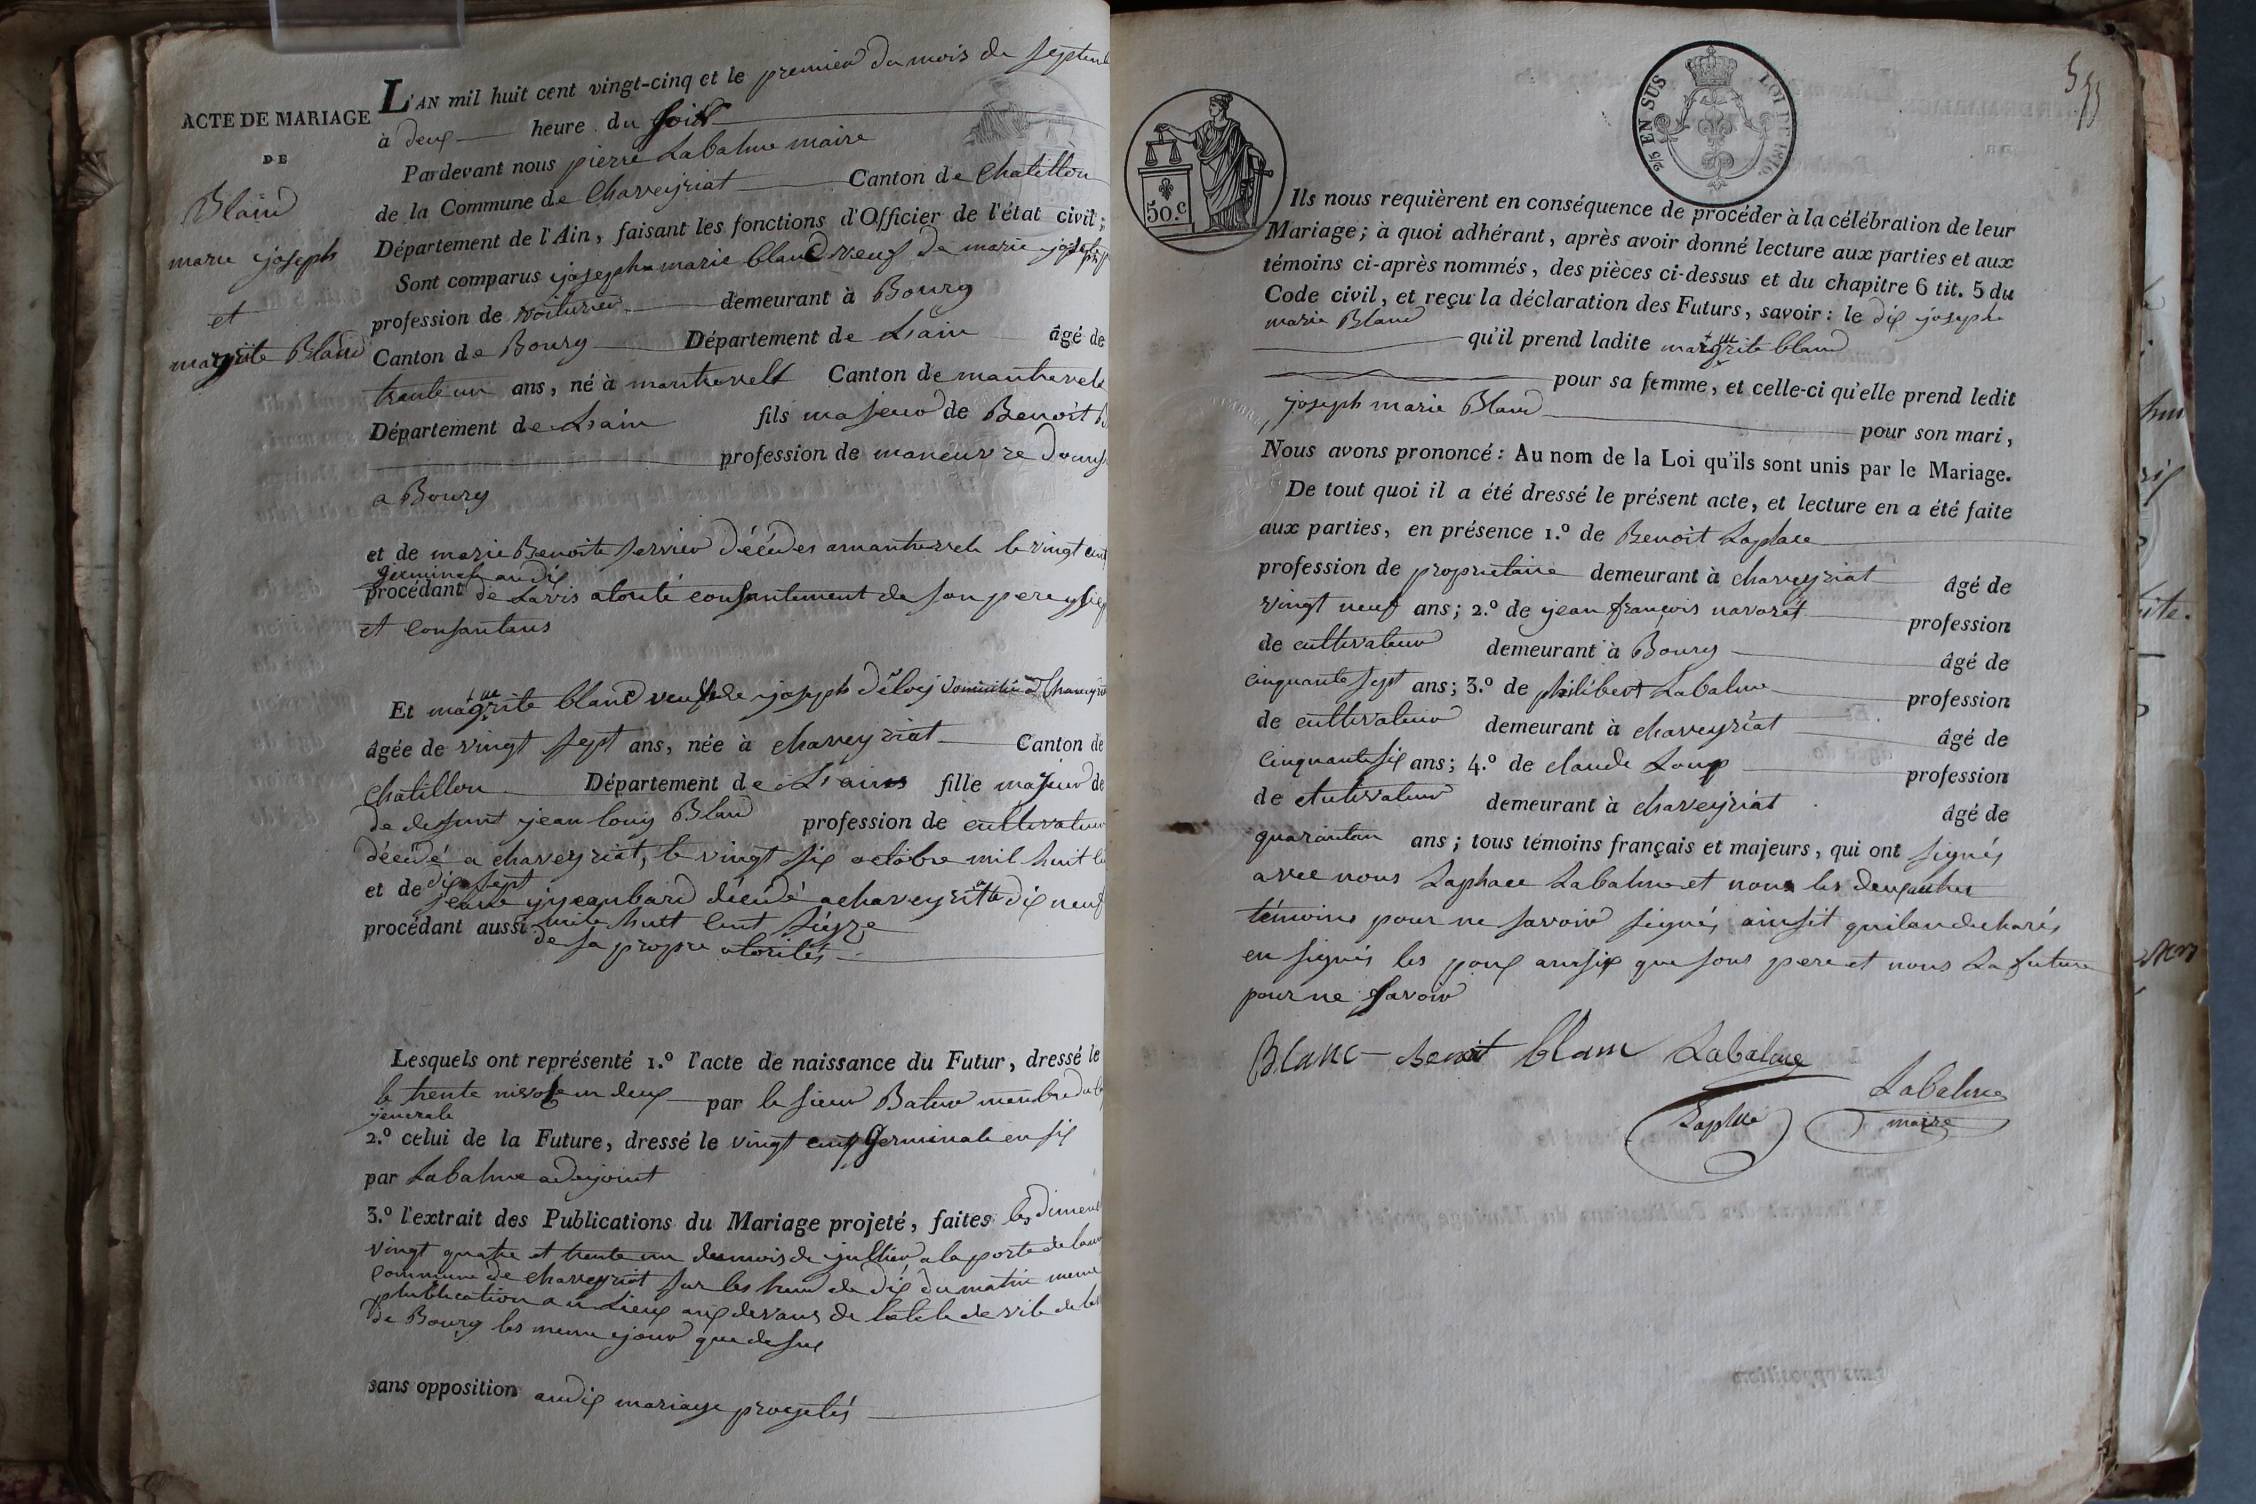 ACTE DE MARIAGE
DE
Bland
marie joseph
et
margrite Bland
L'AN mil huit cent vingt-cinq et le premier du mois de septem
à deux heure du soir
Pardevant nous pierre Labalme maire
de la Commune de Chaveyriat Canton de Chatillon
Département de l'Ain, faisant les fonctions d'Officier de l'état civil;
Sont comparus joseph marie bland veuf de marie
profession de voiturier demeurant à Bourg
Canton de Bourg Département de Lain âgé de
trante un ans, né à montrevelt Canton de montrevele
Département de Lain fils majeur de Benoît B
profession de maneuvre
a Bourg
et de marie Benoite décédes amontrevele le vingt
germinale an dix
procédant de Lavis atorité consantement de son pere
et consantans
Et margrite bland veufe de joseph déloy domicilié a Chaveyria
âgée de vingt sept ans, née à chaveyriat Canton de
Chatillon Département de Lain fille majeur de
de defunt jean louis Bland profession de cultivateur
décédé a chaveyriat, le vingt six octobre mil huit c
dix sept
et de jeane décédé achaveyriat le dix neuf
mile huit cent sèize
procédant aussi de sa propre atorités
Lesquels ont représenté 1.º l'acte de naissance du Futur, dressé le
le trente nivose an deux par le sieur Batur membre du
jenerale
2.º celui de la Future, dressé le vingt cinq Germinale en six
par Labalme adejoint
3.º l'extrait des Publications du Mariage projeté, faites les dimen
vingt quatre et trente un du mois de jullier, a la porte de
commune de chaveyriat sur les heure de dix du matin meme
publication a u Lieux aux devans de latele de vile de
de Bourg les meme jour que desus
sans opposition audix mariage progetés
50.c
2/5 EN SUS
LOI DE 1816.
Ils nous requièrent en conséquence de procéder à la célébration de leur
Mariage; à quoi adhérant, après avoir donné lecture aux parties et aux
témoins ci-après nommés, des pièces ci-dessus et du chapitre 6 tit. 5 du
Code civil, et reçu la déclaration des Futurs, savoir: le dix joseph
marie Bland
qu'il prend ladite margrite bland
pour sa femme, et celle-ci qu'elle prend ledit
joseph marie Bland
pour son mari,
Nous avons prononcé: Au nom de la Loi qu'ils sont unis par le Mariage.
De tout quoi il a été dressé le présent acte, et lecture en a été faite
aux parties, en présence 1.º de Benoit Laplace
profession de proprietaire demeurant à chaveyriat âgé de
vingt neuf ans; 2.º de jean françois navorét profession
de cultivateur demeurant à Bourg âgé de
cinquante sept ans; 3.º de philibert Labalme profession
de cultivateur demeurant à chaveyriat âgé de
cinquante six ans; 4.º de claude Loup profession
de cultivateur demeurant à chaveyriat âgé de
quarantan ans; tous témoins français et majeurs, qui ont signés
avec nous Laplace Labalme et nous les deux autres
témoins pour ne savoir signés ainsit
en signés les poux ainsix que sons pere et nous La future
pour ne savoir
Blanc Benoit blanc Labalme
Laplace Labalme
maire